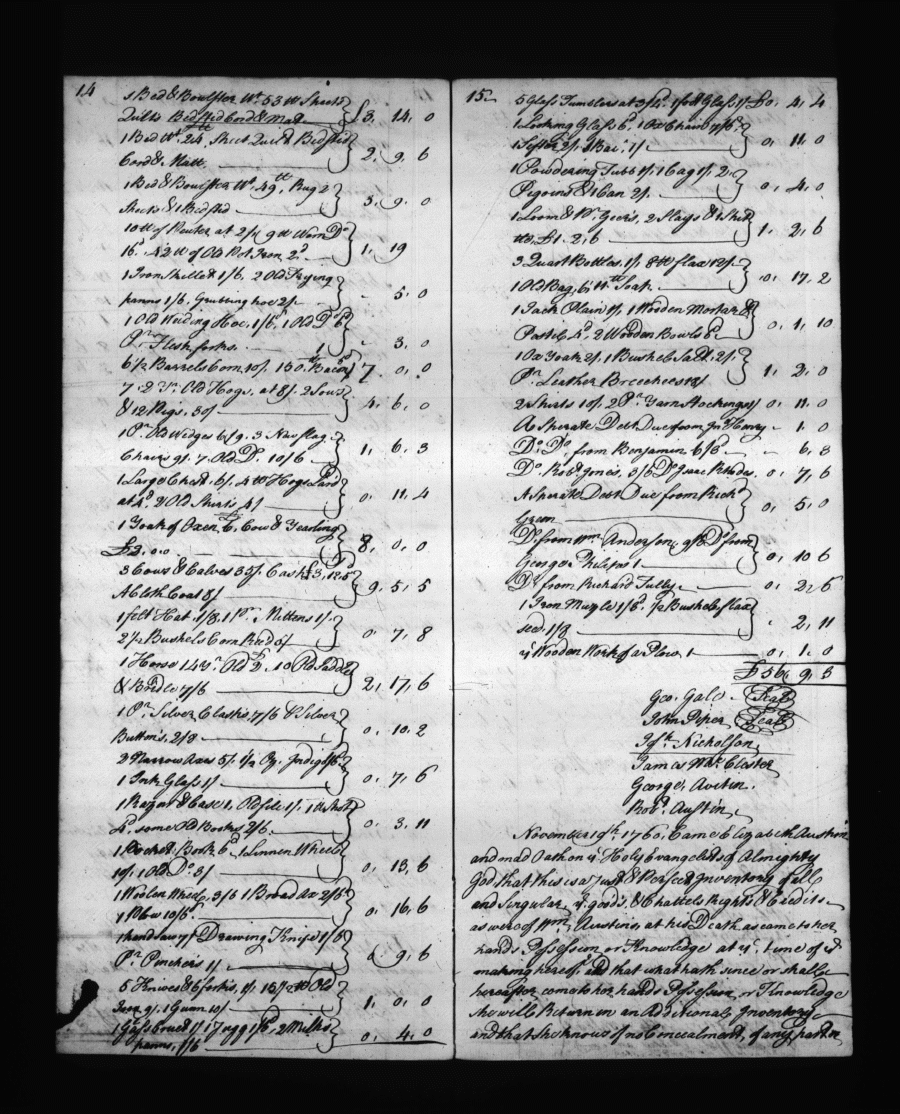 14
1 Bed & Boulster Wt. 53 tt Sheets
Quilts Bedsted Cord & Mat £3, 14, 0
1 Bed Wt. 24, Sheet Quilt & Bedsted
Cord & Matt. 2, 9, 6
1 Bed & Boulster Wt. 49 tt, Rug 2
Sheets & 1 Bedsted 3, 9, 0
10 tt of Peuter at 2/ 9 tt Worn Do
16d. 42 tt of Old Pot Iron 2d 1, 19
1 Iron Skillet 1/6, 2 Old Frying
panns 1/6, Grubbing hoe 2/ 5, 0
1 Old Weeding Hoe, 1/6, 1 Old Do 6
Pr. Flesh forks. 1 3, 0
6 1/2 Barrels Corn 10/. 150 tt Bacon 7, 0, 0
7. 2 Yr. Old Hogs, at 8/. 2 Sows
& 12 Pigs, 30/ 4, 6, 0
1 Pr. Old Wedges 6/9. 3 New flag
Chairs 9/. 7. Old Do. 10/6 1, 6, 3
1 Large Chest. 6/. 4 tt Hogs Lard
at 4d, 2 Old Shirts 4/ 0, 11, 4
1 Yoak of Oxen £6, Cow & Yearling
£2,,0,,0 8, 0, 0
3 Cows & Calves 35/. Cash £3, 12, 5
A Cloth Coat 8/ 9, 5, 5
1 felt Hat, 1/8, 1 Pr. Mittens 1/.
2 1/2 Bushels Corn 5/ 0, 7, 8
1 Horse 14 Yr. Old £2. 10 Old Saddle
& Bridle 7/6 2, 17, 6
1 Pr. Silver Clasps, 7/6 Silver
Buttons, 2/8 0, 10, 2
2 Narrow Axes 5/. 1/4 Oz. Indigo 1/6
1 Ink Glass 1/ 0, 7, 6
1 Razor & Case 1. Old file 1/. 1 tt Shot
4d. some Old Books 2/6. 0, 3, 11
1 Pocket Book 6d 1 Linnen Wheel
10/. 1 Old Do. 3/ 0, 13, 6
1 Woolen Wheel, 3/6 1 Broad Ax 2/6
1 Plow 10/6. 0, 16, 6
1 hand saw 7/ Drawing Knife 1/6
Pr. Pinchers 1/ 0, 9, 6
5 Knives & 6 forks, 1/. 15 1/2 tt Old
Iron 9/. 1 Gunn 10/ 1, 0, 0
1 Glass 1/ 1 1/6, 2 Milk
panns, 1/6 0, 4, 0
15
5 Glass Tumblers at 3/4. 1 foot Glass 1/ £0, 4, 4
1 Looking Glass 6d, 1 Ox Chain 7/6
1 Sifter 2/. 1/ 0, 11, 0
1 Powdering Tubb 1/. 1 Cag 1/. 2
Pigoins & 1 Can 2/. 0, 4, 0
1 Loom & Pr. Geers, 2 Slays & Shut
tle, £1. 2, 6 1, 2, 6
3 Quart Bottles, 1/. 8 tt flax 12/.
1 Old Bag, 6d 0, 17, 2
1 Jack Plain 1/, 1 Wooden Mortar &
Pastil 4d, 2 Wooden Bowls 6d. 0, 1, 10
1 Ox Yoak 2/. 1 Bushel Salt, 2/.
Pr. Leather Breeches 18/ 1, 2, 0
2 Shirts 10/. 2 Pr. Yarn Stockings 1/ 0, 11, 0
A Sperate Debt Due from Jno Henry 1, 0
Do. Do. from Benjamin 6/3 6, 3
Do. Robt Jones, 3/6 Do Isaac Rhodes. 0, 7, 6
A Sperate Debt Due from Richd
Green 0, 5, 0
Do. from Wm Anderson, 9/6 Do from
George Philips 1 0, 10, 6
Do. from Richard Tully 0, 2, 6
1 Iron 1/3. 1/2 Bushel flax
seed, 1/8 2, 11
ye Wooden Work of a Plow, 1 0, 1, 0
£56, 9, 3
Geo. Gale Seal
John Piper Seal
Jost. Nicholson,
James McClester
George Austin.
Robt. Austin,
November 19th 1760, Came Elizabeth Austin
and mad Oath on ye. Holy Evangelists of Almighty
God that this is a Just & Perfect Inventory of all
and Singular, ye. goods, & Chattels Rights & Credits
as were of Wm. Austins, at his Death, as came to her
hands Possession or Knowledge at ye. time of ye
making hereof, and that what hath since or shall
hereafter come to her hands Possession, or Knowledge
She will Return in an Additional Inventory
and that she knows of no Concealment, of any part or